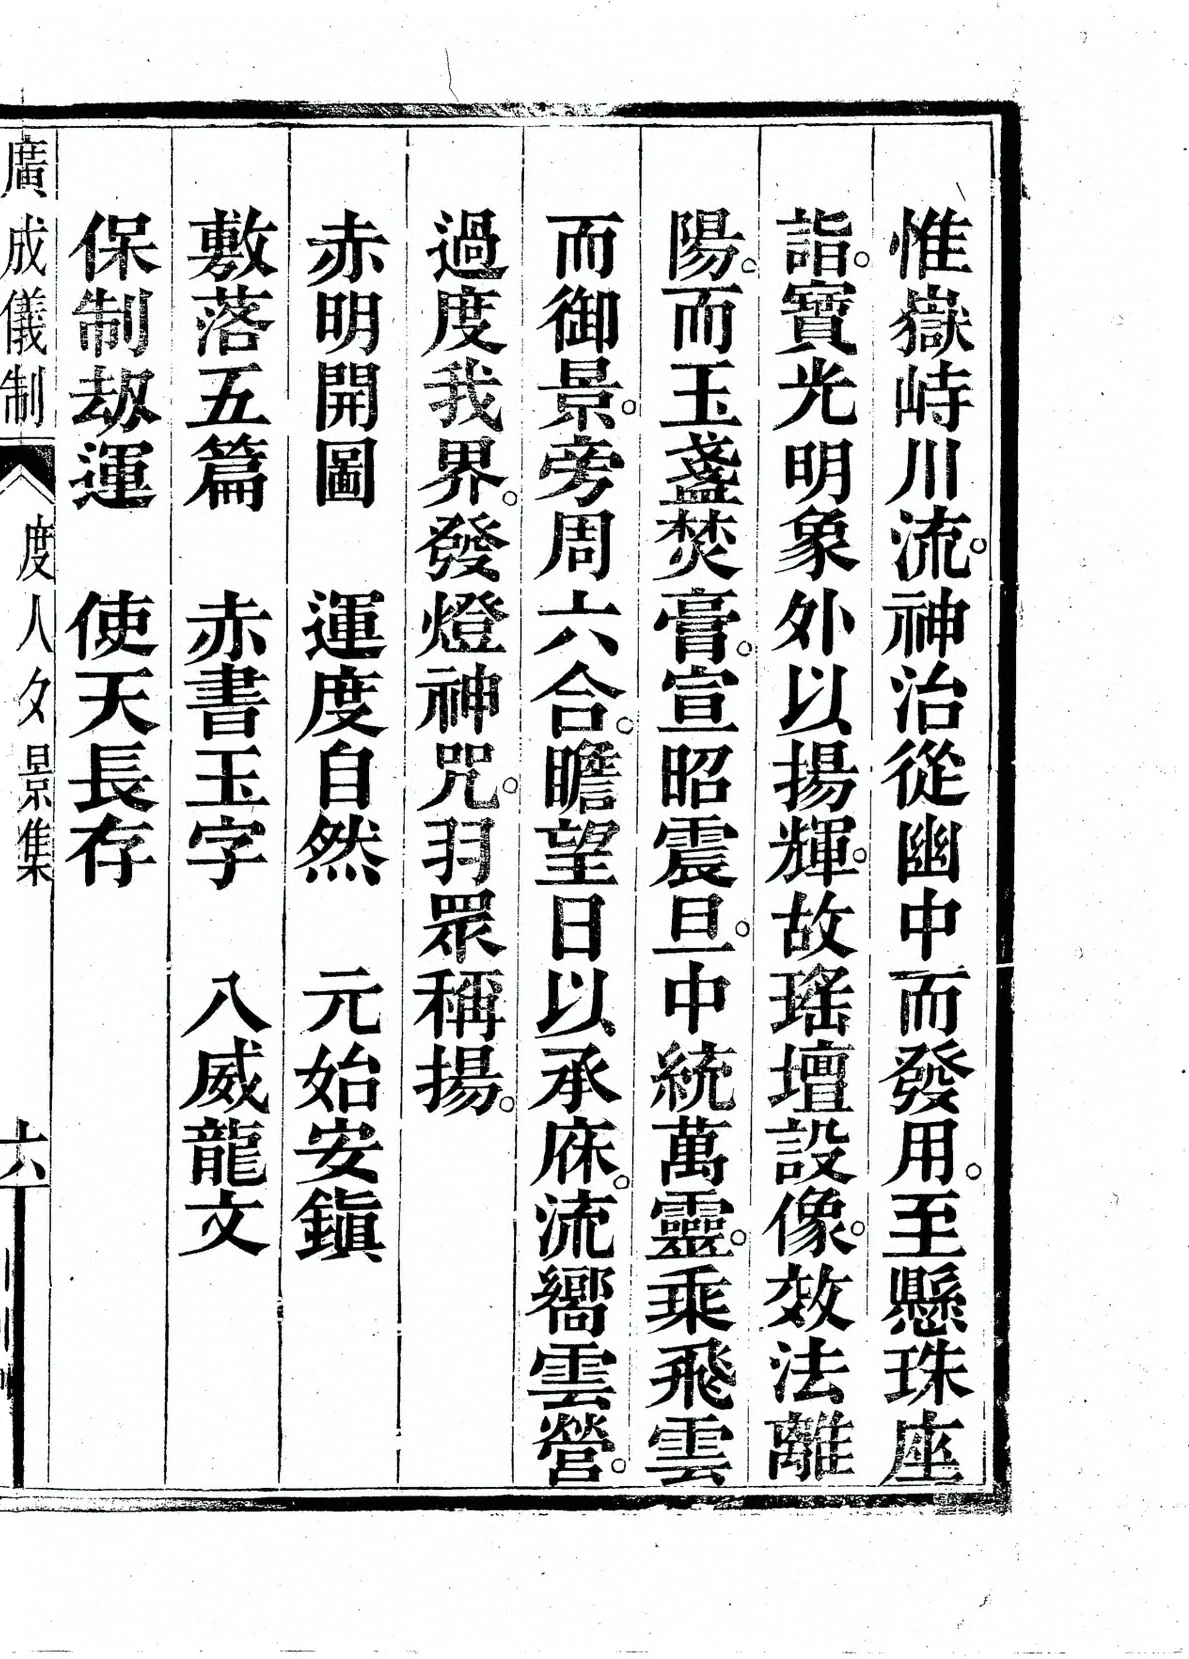 惟嶽峙川流。神治從幽中而發用。至懸珠座
詣。寶光明象外以揚輝。故瑤壇設像。效法離
陽。而玉盞焚膏。宣昭震旦。中統萬靈。乘飛雲
而御景。旁周六合。瞻望日以承庥。流嚮雲營。
過度我界。發燈神咒。羽眾稱揚。
赤明開圖　運度自然　元始安鎮
敷落五篇　赤書玉字　八威龍文
保制劫運　使天長存
廣成儀制　度人夕景集　六